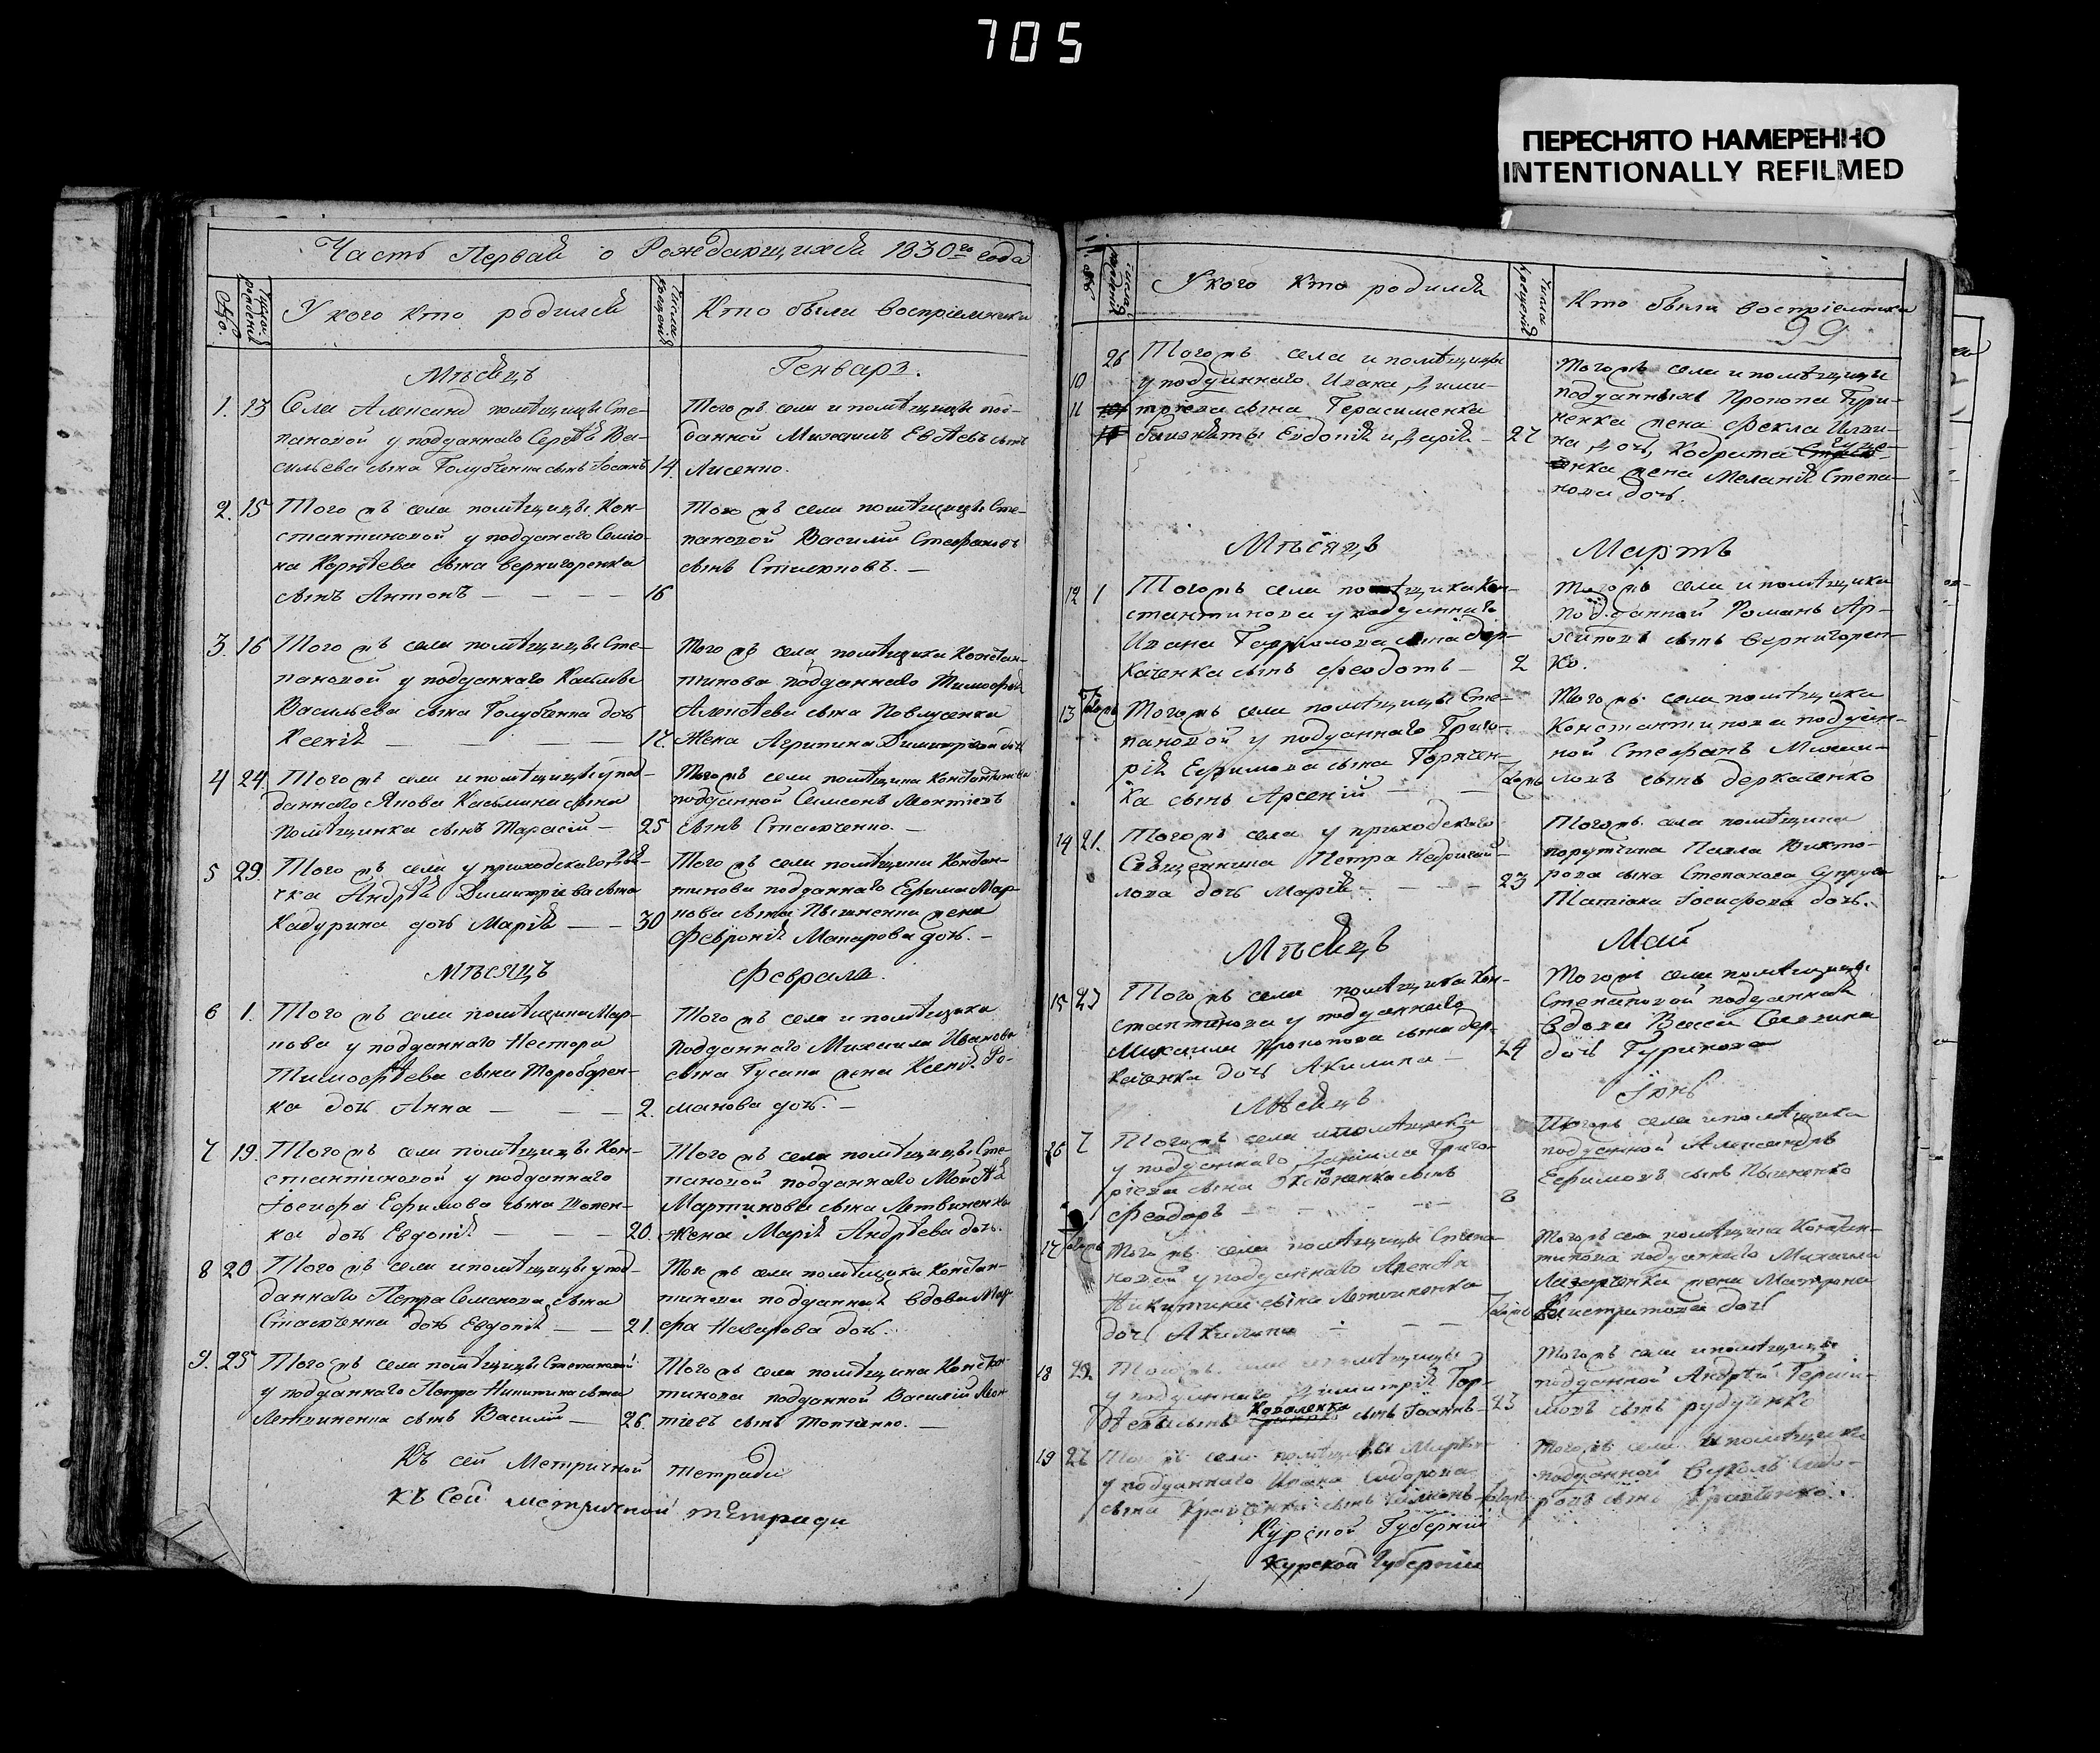 705
ПЕРЕСНЯТО НАМЕРЕННО
INTENTIONALLY REFILMED
Часть Первая о Рождающихся 1830го года
У кого кто родился
Кто были восприемники
Мѣсяцъ
Генварь.
1. 13 Села помѣщицы Сте-
пановой у подданнаго Сергѣя Ва-
сильева сына Голубченка сынъ 14.
Того жъ села и помѣщицы под-
данной Михаилъ сынъ
Лисенко.
2. 15 Того жъ села помѣщицы Кон-
стантиновой у подданаго Семіо-
на Корнѣева сына Вернигоренка
сынъ Антонъ — — — — 16
Того жъ села помѣщицы Сте-
пановой Василій Стефановъ
сынъ
3. 16 Того жъ села помѣщицы Сте-
пановой у подданнаго Касьяна
Васильева сына Голубченка дочь
Ксенія — — — — 17.
Того жъ села помѣщика Констан-
тинова подданнаго Тимофея
Алексѣева сына Павлусенка
жена Агрипина Димитріева дочь
4 24. Того жъ села и помѣщицы у под-
даннаго Якова Касьмина сына
сынъ Тарасій — 25
Того жъ села помѣщика Константинова
подданной Самсонъ Леонтіевъ
сынъ
5 29. Того жъ села у приходскаго дья-
чка Андрѣя Димитріева сына
Кадурина дочь Марія — — 30
Того жъ села помѣщика Констан-
тинова подданнаго Ефима Мар-
кова сына Пышненка жена
Февронія Макарова дочь. —
Мѣсяцъ
Февраль.
6 1. Того жъ села помѣщика Мар-
кова у подданнаго Нестора
Тимофѣева сына
ка дочь Анна — — — 2.
Того жъ села и помѣщика
Подданнаго Михаила Иванова
сына Гусака жена Ксенія Ро-
манова дочь. —
7 19. Того жъ села помѣщицы Кон-
стантиновой у подданнаго
Іосифа Ефимова сына
ка дочь Евдокія — — — 20.
Того жъ села помѣщицы Сте-
пановой подданнаго Моисѣя
Мартинова сына Литвиненка
жена Марія Андрѣева дочь.
8 20 Того жъ села и помѣщицы у под-
даннаго Петра Семенова сына
дочь Евдокія — — 21.
Того жъ села помѣщика Констан-
тинова подданная вдова Мар-
фа дочь.
9. 25 Того жъ села помѣщицы Степановой
у подданнаго Петра Никитина сына
Литвиненка сынъ Василій — 26.
Того жъ села помѣщика Констан-
тинова подданной Василій Леон-
тіевъ сынъ —
Къ сей Метричной тетради
къ сей метричной тетради
У кого кто родился
Кто были восприемники
99
26 Того жъ села и помѣщицы
10 у подданнаго Исака Дими-
11 тріева сына Герасименка
близняты Евдокія и Дарія — 27
Того жъ села и помѣщицы
подданныхъ Прокопа Гури-
ненка жена Фекла
на дочь, Кодрата
жена Меланія Степа-
нова дочь.
Мѣсяцъ
Мартъ
12 1 Того жъ села помѣщика Кон-
стантинова у подданнаго
Ивана сына Дер-
каченка сынъ Феодотъ — 2
Того жъ села и помѣщика
подданной Романъ Ар-
хиповъ сынъ Вернигорен-
ко.
13 Того жъ села помѣщицы Сте-
пановой у подданнаго Григо-
рія Ефимова сына
ка сынъ Арсеній — —
Того жъ села помѣщика
Константинова поддан-
ной Стефанъ Михаи-
ловъ сынъ Деркаченко
14 21. Того жъ села у приходскаго
Священника Петра
лова дочь Марія — — — 23
Того жъ села помѣщика
порутчика Павла Викто-
рова сына Степанова супруга
Іосифова дочь.
Мѣсяцъ
Май
15 23 Того жъ села помѣщика Кон-
стантинова у подданнаго
Михаила Прокопова сына Дер-
каченка дочь Акилина — 24
Того жъ села помѣщицы
Степановой подданная
вдова Васса Саввина
дочь Гурикова
Мѣсяцъ
Іюнь
16 7 Того жъ села и помѣщика
у подданнаго Даніила Григо-
ріева сына сынъ
Феодоръ — — — — 8
Того жъ села и помѣщика
подданной Александръ
Ефимовъ сынъ Пышненко
17 Того жъ села помѣщицы Степа-
новой у подданнаго Алексѣя
Никитина сына Литвиненка
дочь Акилина — — —
Того жъ села помѣщика Констан-
тинова подданнаго Михаила
Лазаренка жена Матрона
дочь
18 22. Того жъ села и помѣщицы
у подданнаго Димитрія Гор-
дѣева сына Коваленка сынъ Іоаннъ — 23
Того жъ села и помѣщицы
подданной Андрѣй Гераси-
мовъ сынъ Рудученко
19 27 Того жъ села помѣщика Марко-
у подданнаго Ивана Сидорова
сына сынъ
Того жъ села и помѣщика
подданной Сидо-
ровъ сынъ
Курской Губерніи
Курской Губерніи